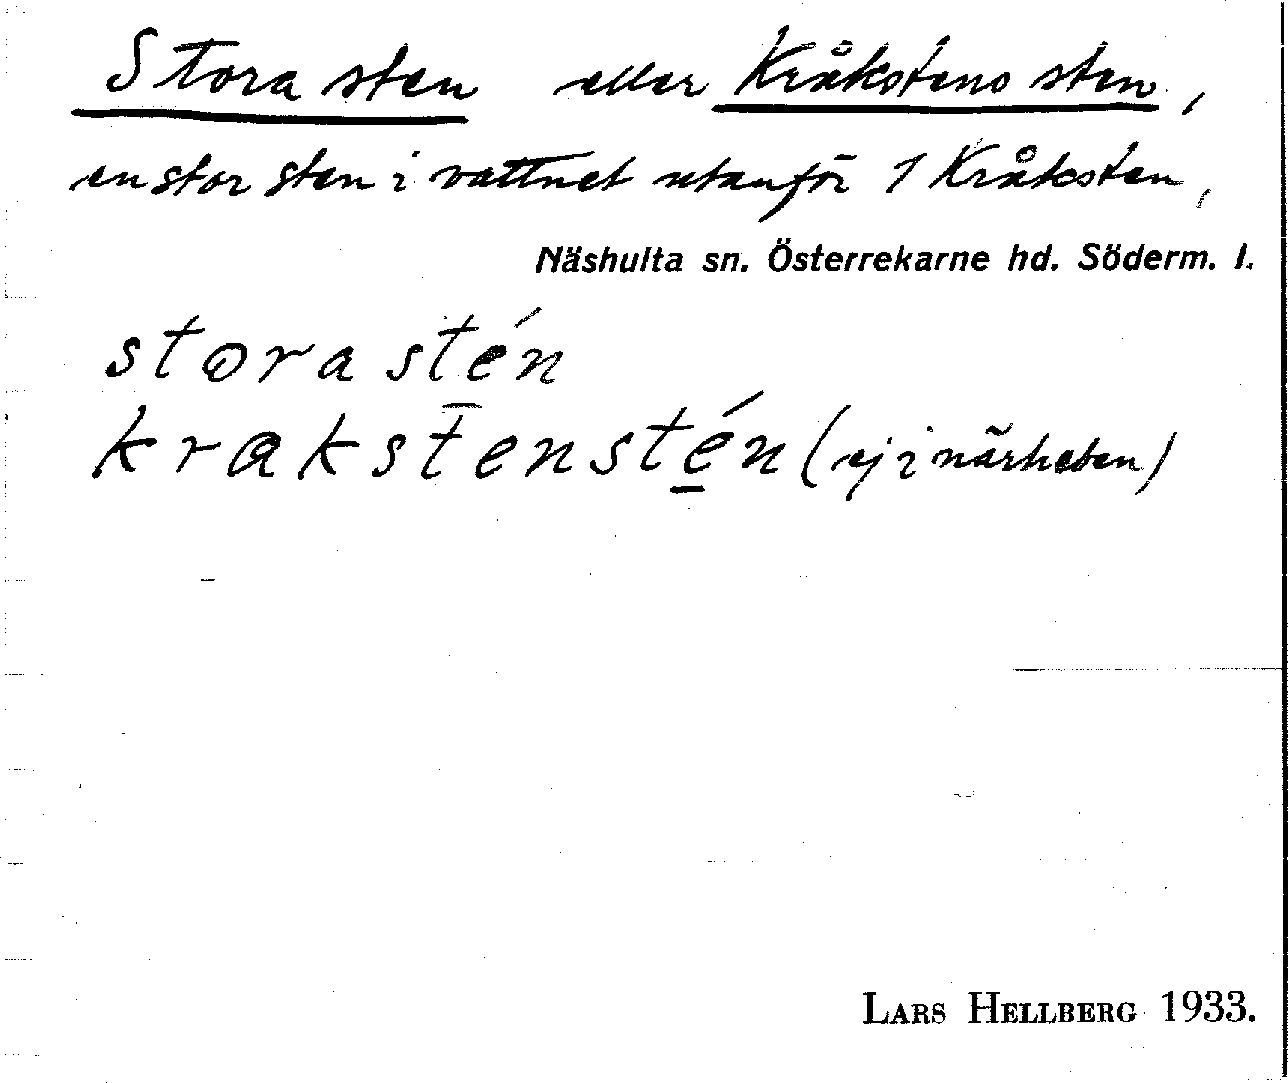 Stora sten eller Kråkstens sten,
en stor sten i vattnet utanför 1 Kråksten,
Näshulta sn. Österrekarne hd. Söderm. l.
stora stén
krakstenstén (ej i närheten)
LARS HELLBERG 1933.